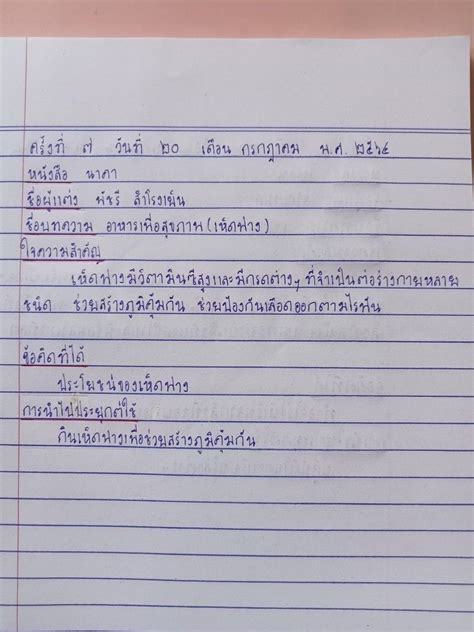 ครั้งที่ ๗ วันที่ ๒๐ เดือน กรกฎาคม พ.ศ. ๒๕๖๔
หนังสือ นาคา
ชื่อผู้แต่ง พัชรี สำโรงเย็น
ชื่อบทความ อาหารเพื่อสุขภาพ(เห็ดฟาง)
ใจความสำคัญ
เห็ดฟางมีวิตามินซีสูงและมีกรดต่างๆ ที่จำเป็นต่อร่างกายหลาย
ชนิด ช่วยสร้างภูมิคุ้มกัน ช่วยป้องกันเลือดออกตามไรฟัน
ข้อคิดที่ได้
ประโยชน์ของเห็ดฟาง
การนำไปประยุกต์ใช้
กินเห็ดฟางเพื่อช่วยสร้างภูมิคุ้มกัน